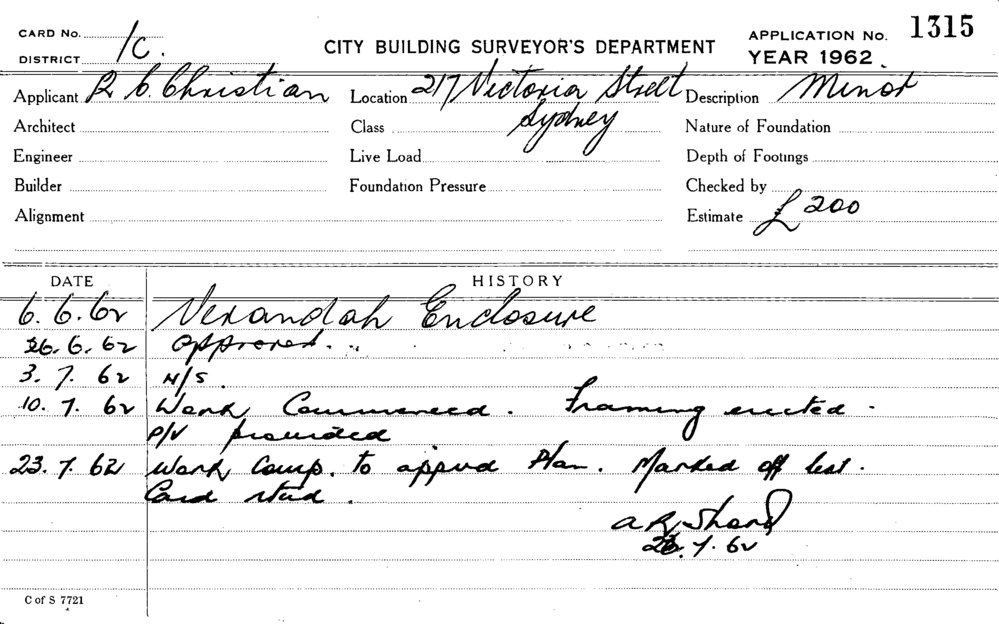 CARD No.
DISTRICT 1C.
CITY BUILDING SURVEYOR'S DEPARTMENT
APPLICATION No. 1315
YEAR 1962.
Applicant R C. Christian Location 217 Victoria Street Description Minor
Architect Class Sydney Nature of Foundation
Engineer Live Load Depth of Footings
Builder Foundation Pressure Checked by
Alignment Estimate £200
DATE HISTORY
6.6.62 Verandah Enclosure
26.6.62 Approved.
3.7.62 N/S.
10.7.62 Work Commenced. Framing erected.
P/V provided
23.7.62 Work Comp. to appvd Plan. Marked off list.
Card
A R Shand
7.62
C of S 7721